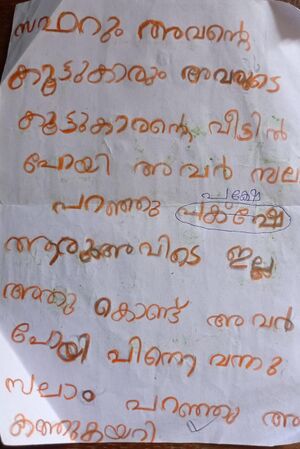 സഫറും അവന്റെ
കൂട്ടുകാരും അവരുടെ
കൂട്ടുകാരന്റെ വീട്ടിൽ
പോയി അവൻ സല
പക്ഷേ
പറഞ്ഞു പക്ഷേ
അവിടെ ഇല്ല
അതു കൊണ്ട് അവൻ
പോയി പിന്നെ വന്നു
സലാം പറഞ്ഞു അ
കത്തുകയറി